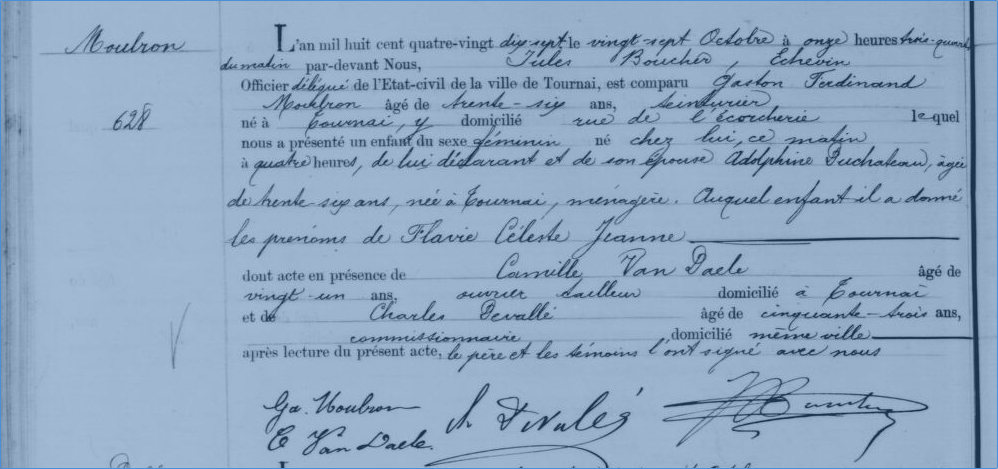 Moulron
L'an mil huit cent quatre-vingt dix-sept le vingt-sept Octobre à onze heures trois-quarts
du matin par-devant Nous, Jules Boucher, Echevin
Officier délégué de l'Etat-civil de la ville de Tournai, est comparu Gaston Ferdinand
Moulron âgé de trente-six ans, teinturier
628
né à Tournai, y domicilié rue de l'écorcherie lequel
nous a présenté un enfant du sexe féminin né chez lui, ce matin
à quatre heures, de lui déclarant et de son épouse Adolphine Duchateau, âgée
de trente six ans, née à Tournai, ménagère. Auquel enfant il a donné
les prénoms de Flavie Céleste Jeanne
dont acte en présence de Camille Van Daele âgé de
vingt-un ans, ouvrier tailleur domicilié à Tournai
et de Charles Devallé âgé de cinquante-trois ans,
commissionnaire domicilié même ville
après lecture du présent acte, le père et les témoins l'ont signé avec nous
Ga. Moulron
Ch Devalés
C Van Daele.